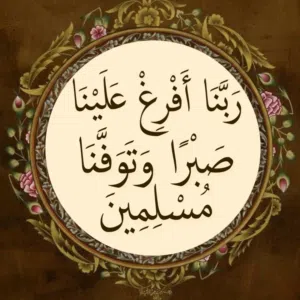 رَبَّنَا أَفْرِغْ عَلَيْنَا
صَبْرًا وَتَوَفَّنَا
مُسْلِمِينَ